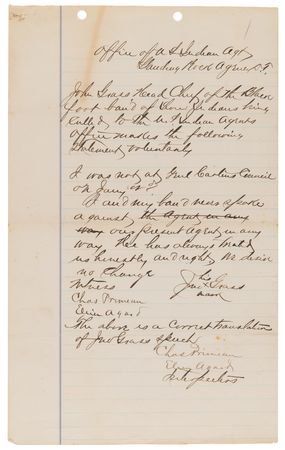 Office of U S Indian Agt
Standing Rock Agency D.T.
John Grass Head Chief of the Black
foot band of Sioux Indians being
called to the U S Indian Agents
Office makes the following
Statement voluntarily
I was not at Genl Carlins Council
on
I and my band never spoke
against the Agent in any
way our present Agent in any
way He has always treated
us honestly and right We desire
no change
his
Witness Jno x Grass
mark
Chas Primeau
Agard
The above is a correct translation
of Jno Grass speech
Chas Primeau
Agard
Interpreters